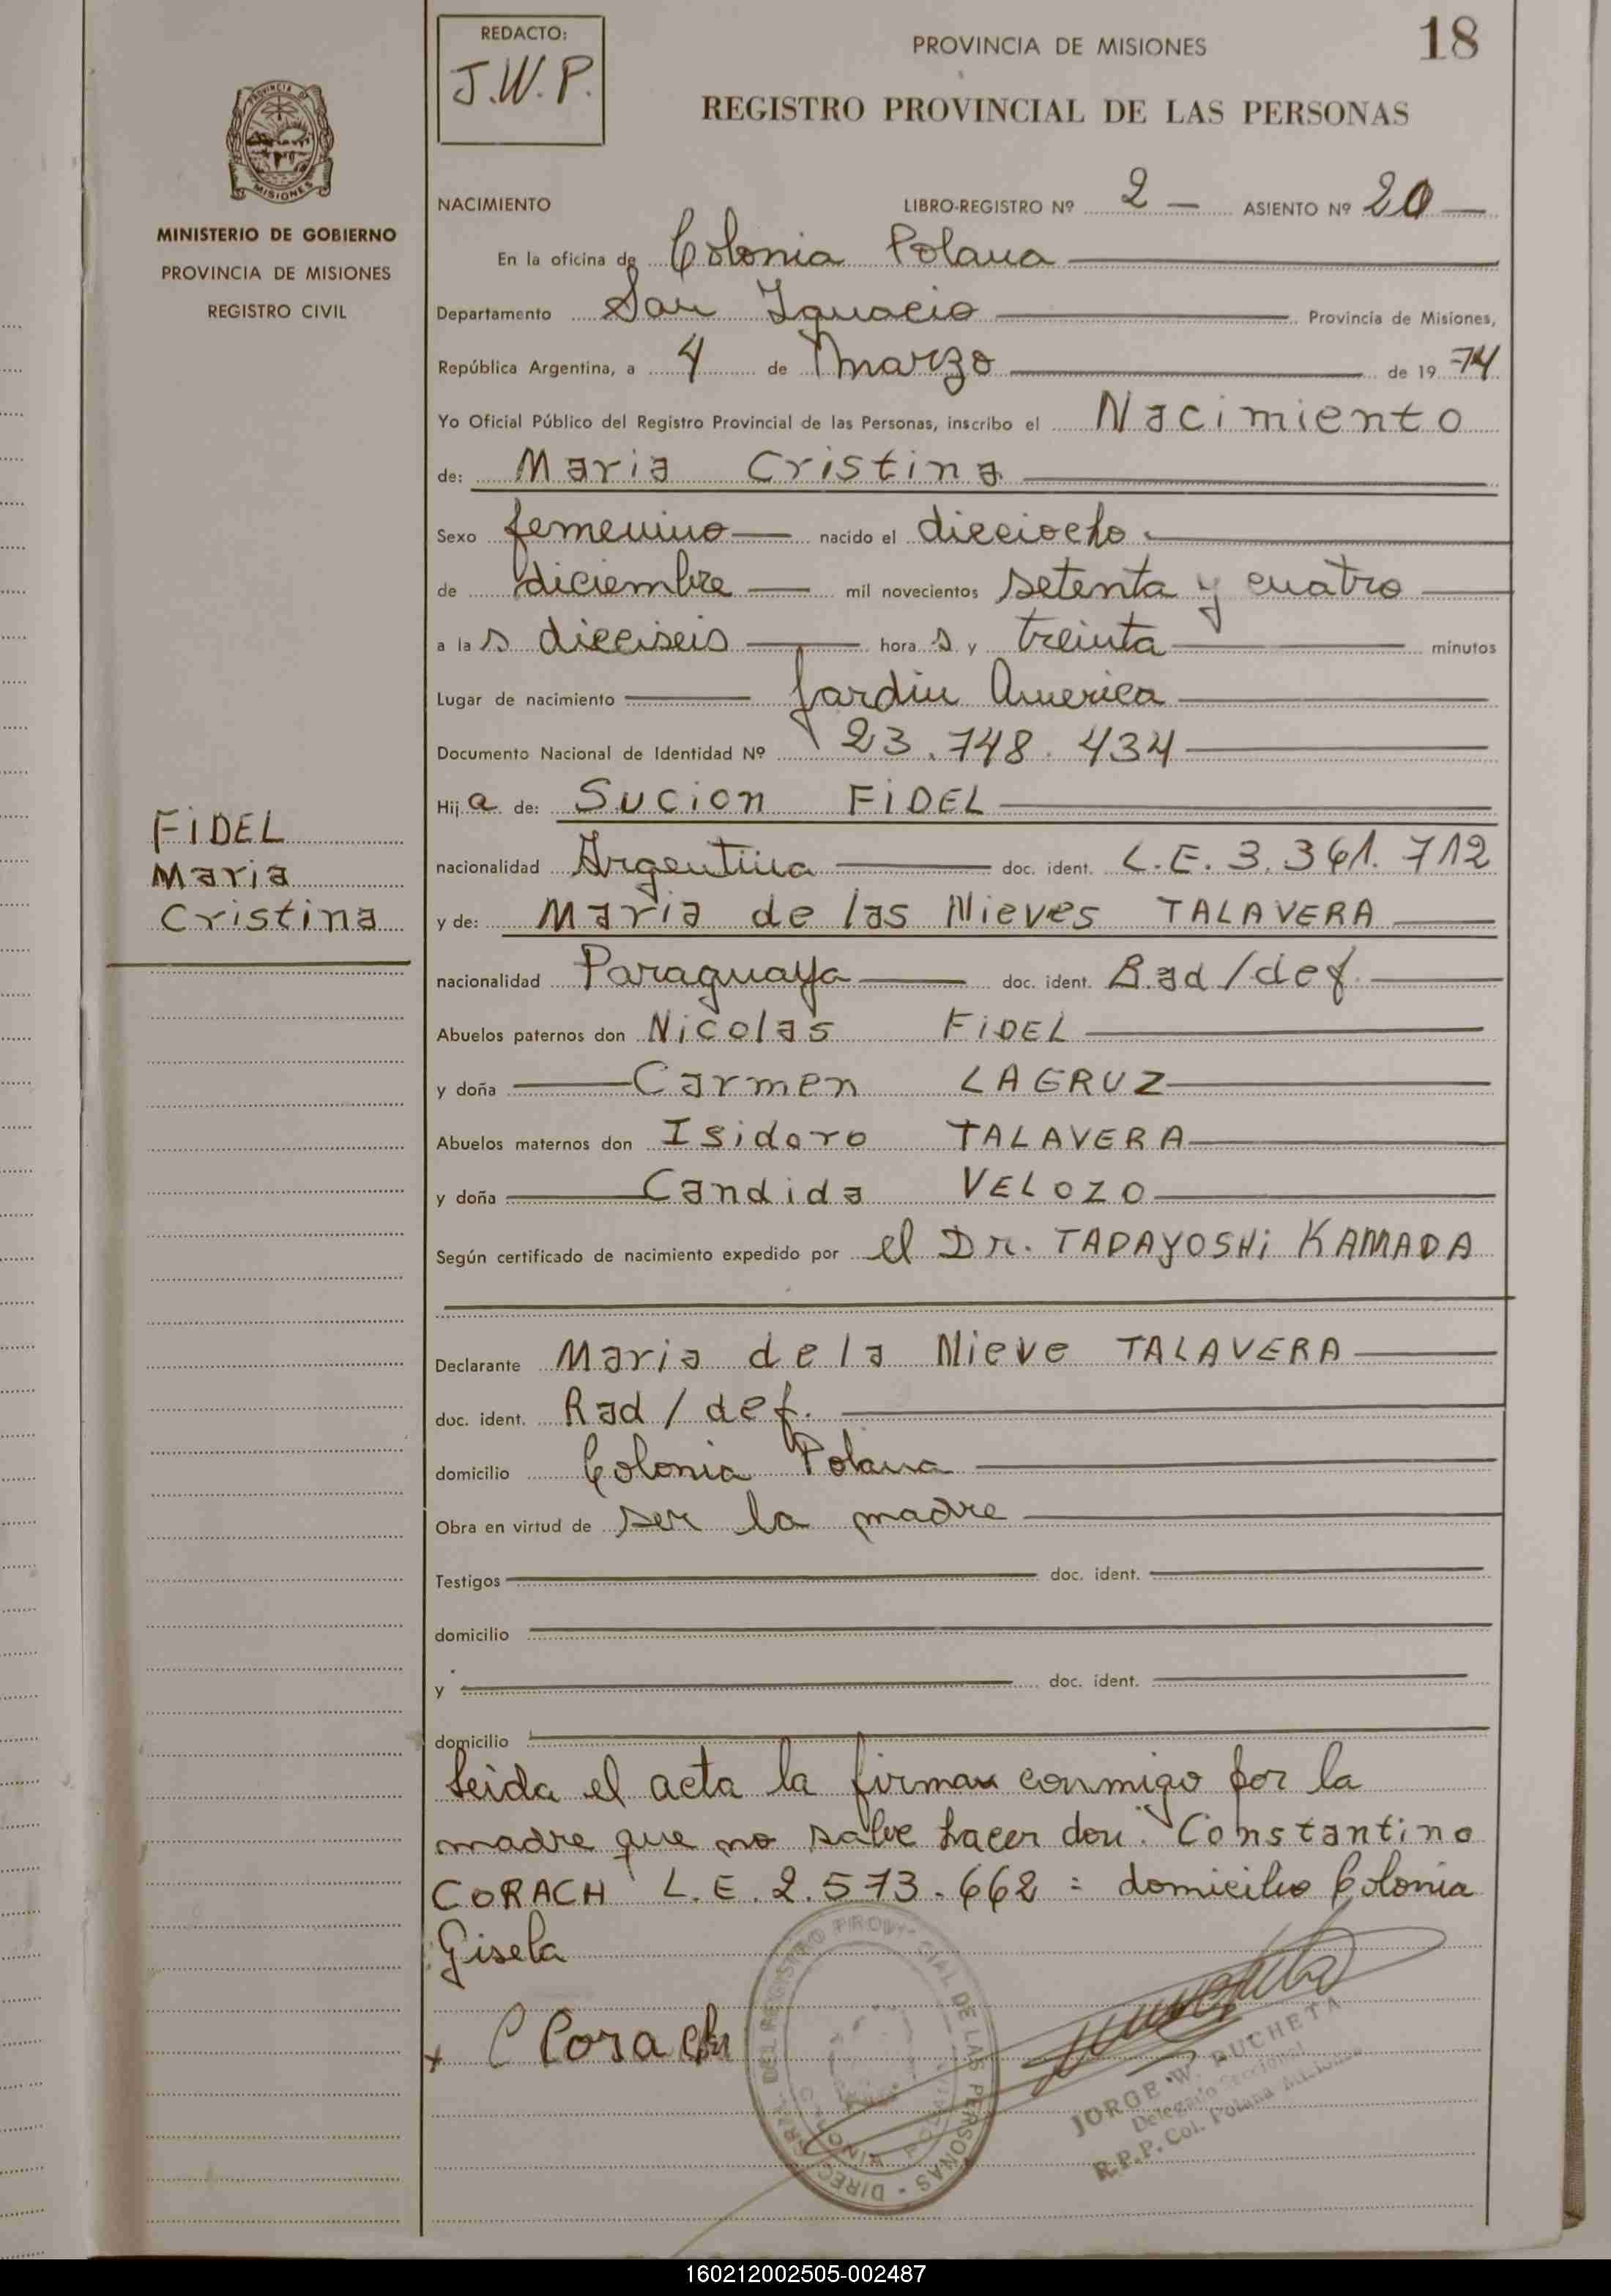 REDACTO:
J.W.P.
PROVINCIA DE MISIONES
18
REGISTRO PROVINCIAL DE LAS PERSONAS
MISIONES
MINISTERIO DE GOBIERNO
PROVINCIA DE MISIONES
REGISTRO CIVIL
NACIMIENTO LIBRO-REGISTRO Nº 2 — ASIENTO Nº 20 —
En la oficina de Colonia Polana
Departamento San Ignacio Provincia de Misiones,
República Argentina, a 4 de marzo de 1974
Yo Oficial Público del Registro Provincial de las Personas, inscribo el Nacimiento
de: Maria Cristina
Sexo femenino nacido el dieciocho
de diciembre mil novecientos setenta y cuatro
a las dieciseis horas y treinta minutos
Lugar de nacimiento Jardin America
Documento Nacional de Identidad Nº 23.748.434
Hija de: Sucion FIDEL
FIDEL
Maria
Cristina
nacionalidad Argentina doc. ident. L.E. 3.361.712
y de: Maria de las Nieves TALAVERA
nacionalidad Paraguaya doc. ident. Rad/def.
Abuelos paternos don Nicolas FIDEL
y doña Carmen LAGRUZ
Abuelos maternos don Isidoro TALAVERA
y doña Candida VELOZO
Según certificado de nacimiento expedido por el Dr. TADAYOSHI KAMADA
Declarante Maria de la Nieve TALAVERA
doc. ident. Rad/def.
domicilio Colonia Polana
Obra en virtud de ser la madre
Testigos doc. ident.
domicilio
y doc. ident.
domicilio
Leida el acta la firman conmigo por la
madre que no sabe hacer don. Constantino
CORACH L.E. 2.573.662 = domicilio Colonia
Gisela
+ C Corach
DIRECC. GRAL. DEL REGISTRO PROVINCIAL DE LAS PERSONAS
JORGE W. PUCHETA
Delegado Seccional
R.P.P. Col. Polana Misiones
160212002505-002487